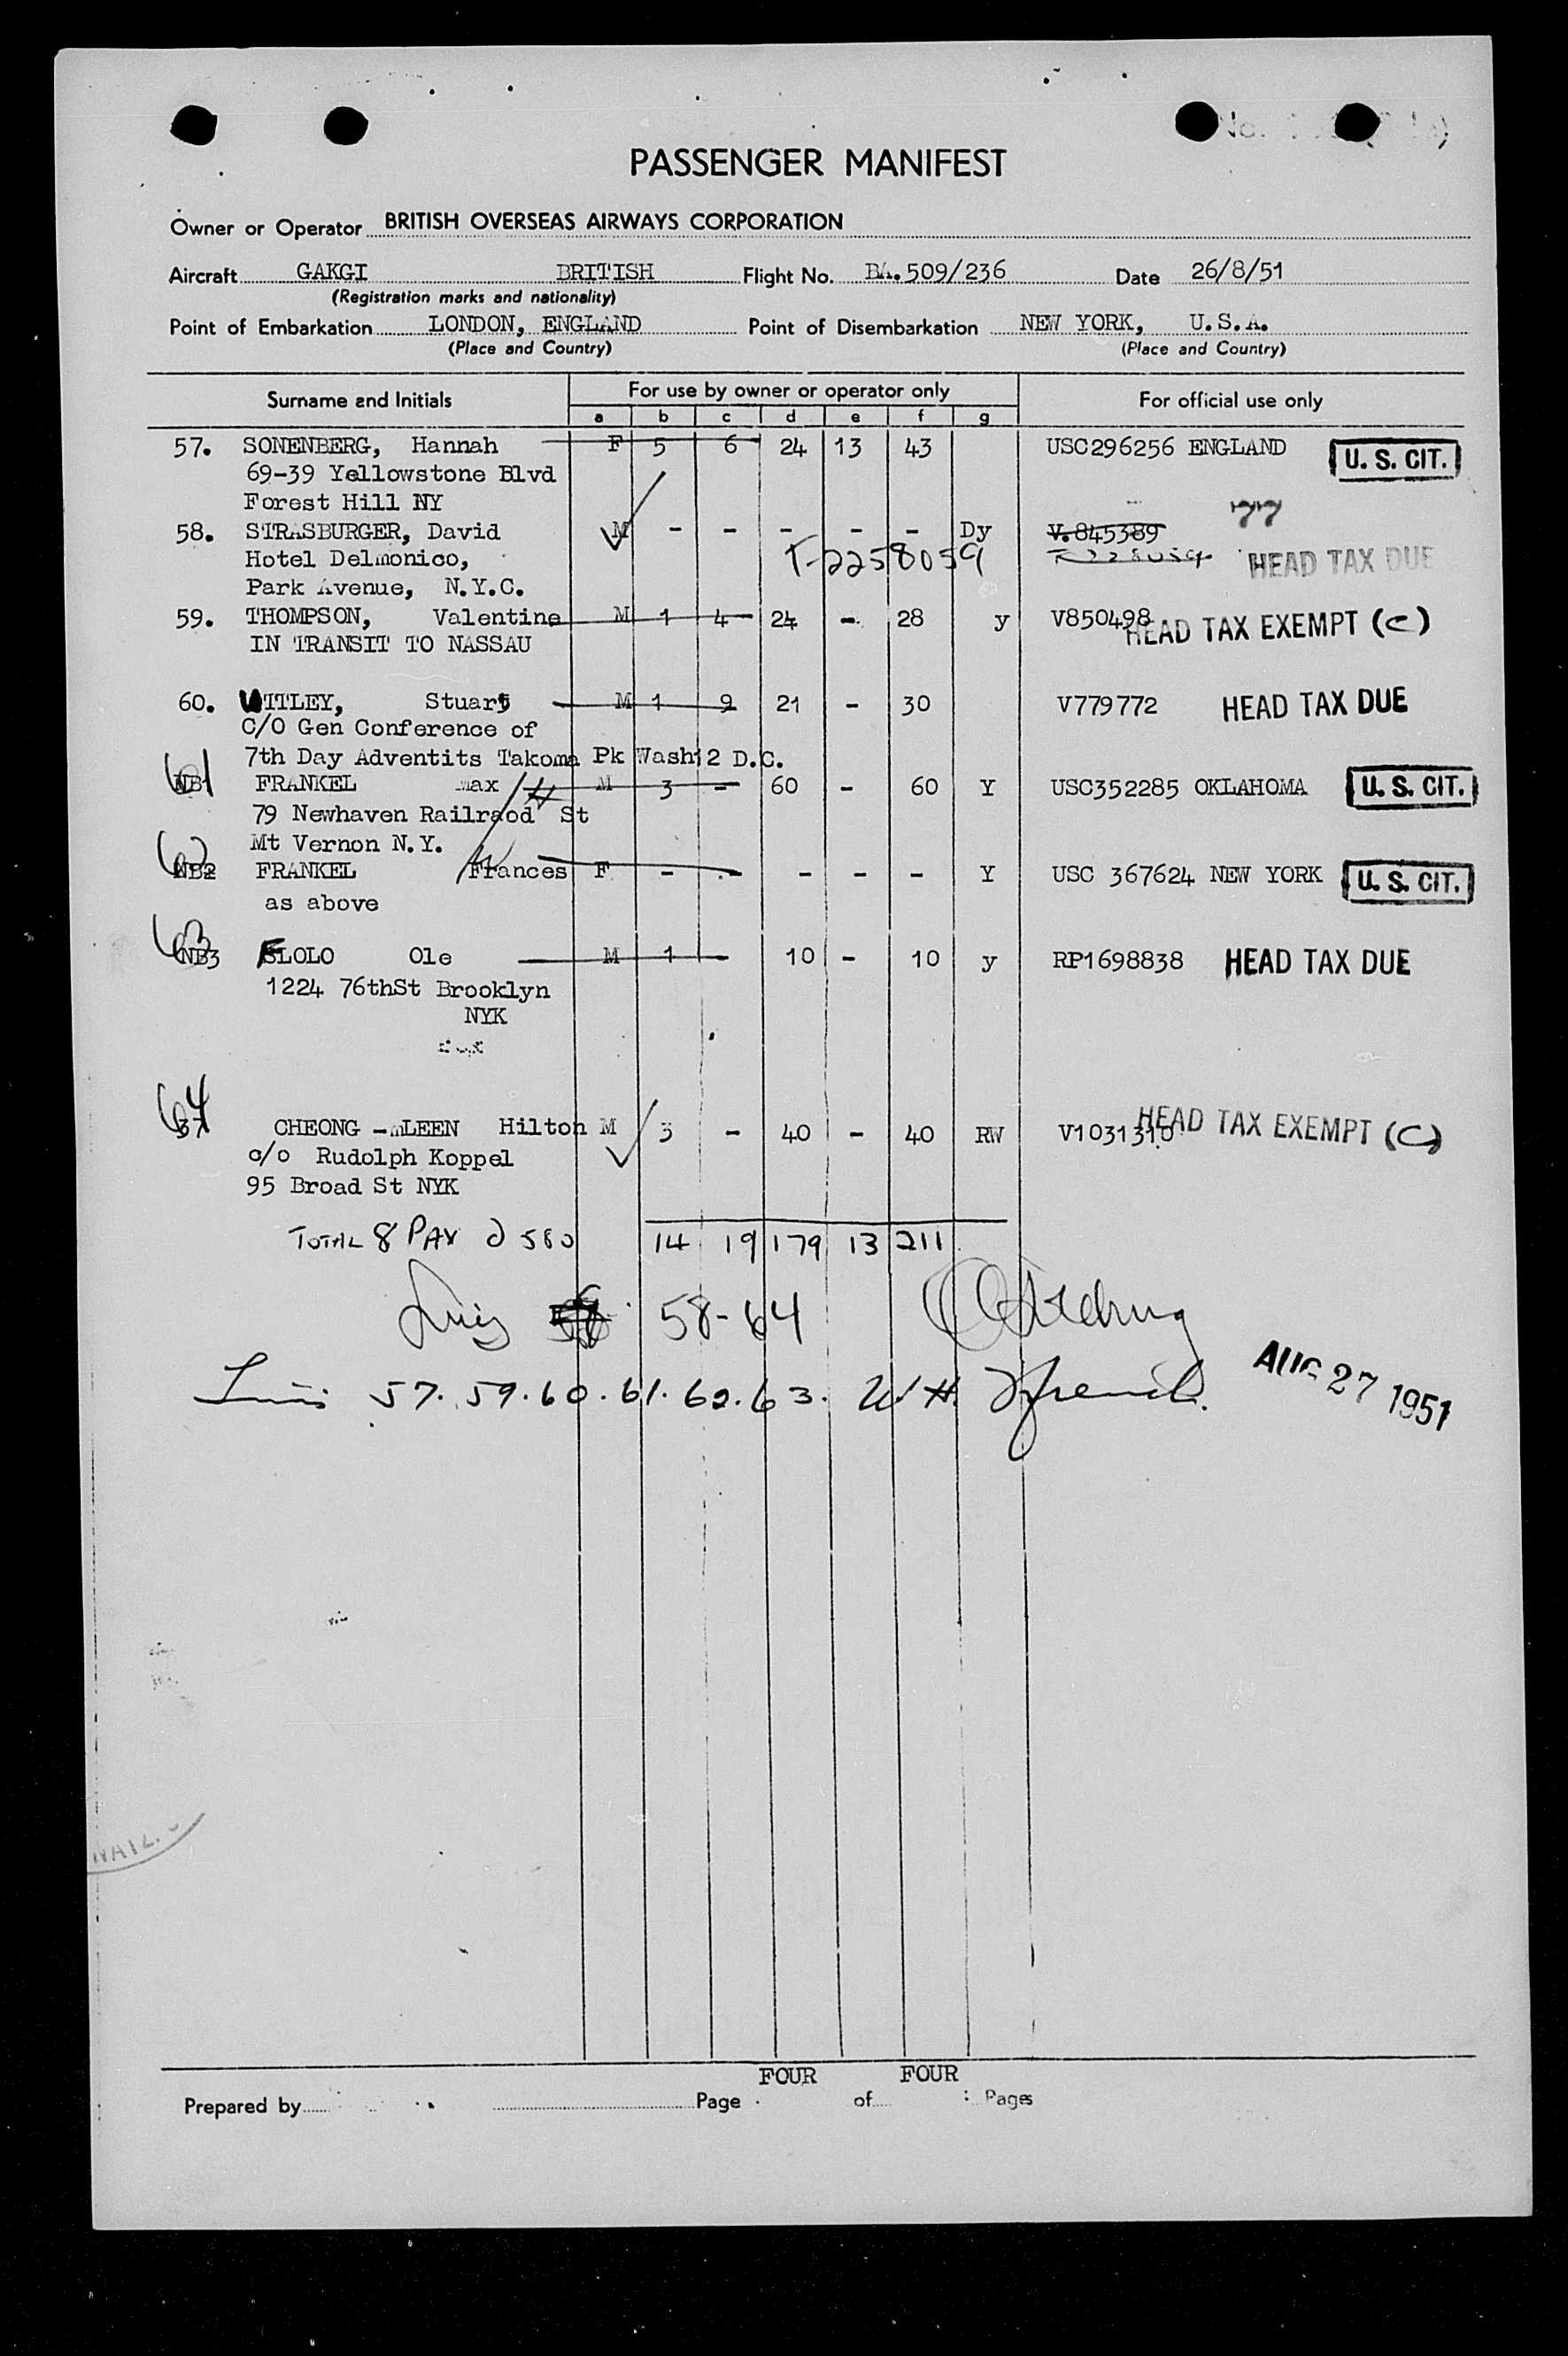 PASSENGER MANIFEST
Owner or Operator BRITISH OVERSEAS AIRWAYS CORPORATION
Aircraft GAKGI BRITISH Flight No. BA.509/236 Date 26/8/51
(Registration marks and nationality)
Point of Embarkation LONDON, ENGLAND Point of Disembarkation NEW YORK, U.S.A.
(Place and Country) (Place and Country)
Surname and Initials For use by owner or operator only For official use only
a b c d e f g
57. SONENBERG, Hannah F 5 6 24 13 43 USC296256 ENGLAND U. S. CIT.
69-39 Yellowstone Blvd
Forest Hill NY 77
58. STRASBURGER, David M - - - - - Dy V.845389
Hotel Delmonico, T-2258059 HEAD TAX DUE
Park Avenue, N.Y.C.
59. THOMPSON, Valentine M 1 4 24 - 28 y V850498 HEAD TAX EXEMPT (C)
IN TRANSIT TO NASSAU
60. WITLEY, Stuart M 1 9 21 - 30 V779772 HEAD TAX DUE
C/O Gen Conference of
7th Day Adventits Takoma Pk Wash12 D.C.
61 NB1 FRANKEL Max M 3 - 60 - 60 Y USC352285 OKLAHOMA U. S. CIT.
79 Newhaven Railraod St
Mt Vernon N.Y.
62 NB2 FRANKEL Frances F - - - - - Y USC 367624 NEW YORK U. S. CIT.
as above
63 NB3 FLOLO Ole M 1 - 10 - 10 y RP1698838 HEAD TAX DUE
1224 76thSt Brooklyn
NYK
64 CHEONG - LEEN Hilton M 3 - 40 - 40 RW V1031310 HEAD TAX EXEMPT (C)
c/o Rudolph Koppel
95 Broad St NYK
TOTAL 8 PAX 14 19 179 13 211
58-64
57. 59. 60. 61. 62. 63. W H.
AUG 27 1951
FOUR FOUR
Prepared by Page of Pages